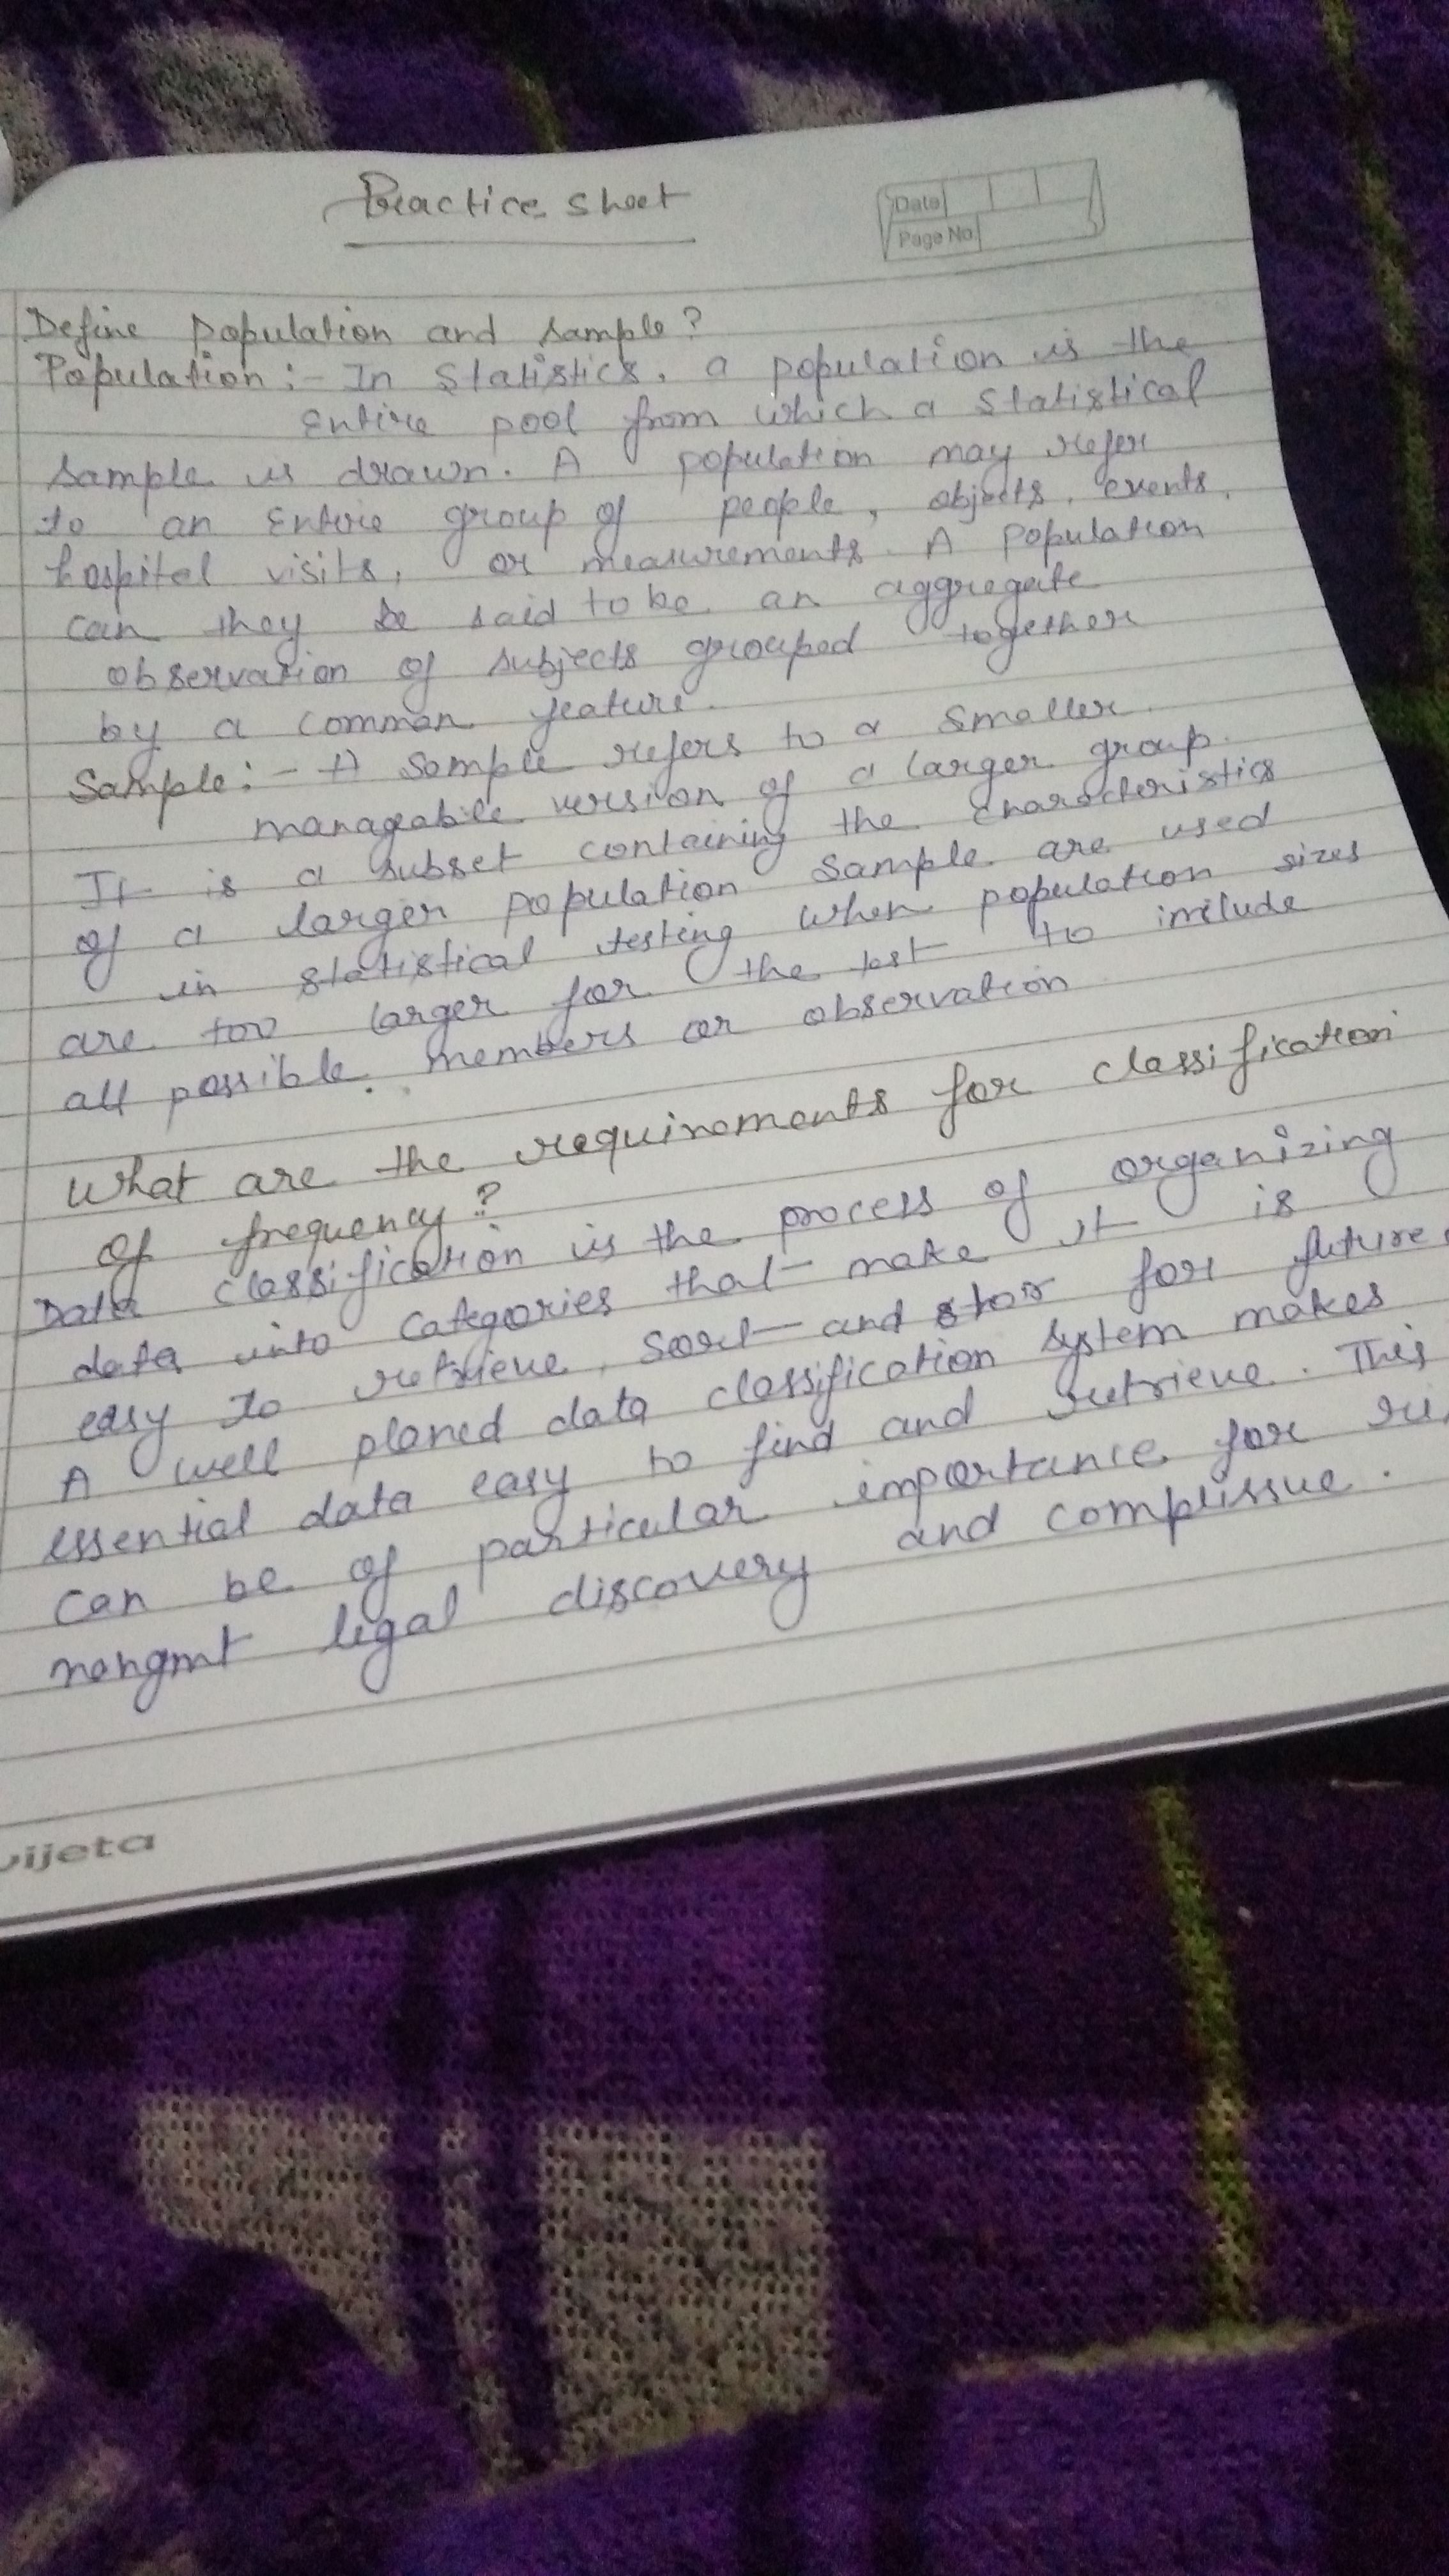 Practice sheet
Date
Page No
Define population and sample?
Population :- In Statistics, a population is the
Entire pool from which a Statistical
sample is drawn. A population may refer
to an Entire group of people, objects, events,
hospital visits, or measurements. A population
can they be said to be an aggregate
observation of subjects grouped together
by a common feature.
Sample :- A sample refers to a smaller
manageable version of a larger group.
It is a subset containing the characteristics
of a larger population Sample are used
in statistical testing when population sizes
are too larger for the test to include
all possible. members or observation
What are the requirements for classification
of frequency?
Data classification is the process of organizing
data into categories that make it is
easy to retrieve, Sort and stor for future
A well planed data classification system makes
essential data easy to find and retrieve. This
can be of particular importance for
mangmt legal discovery and complissue.
vijeta